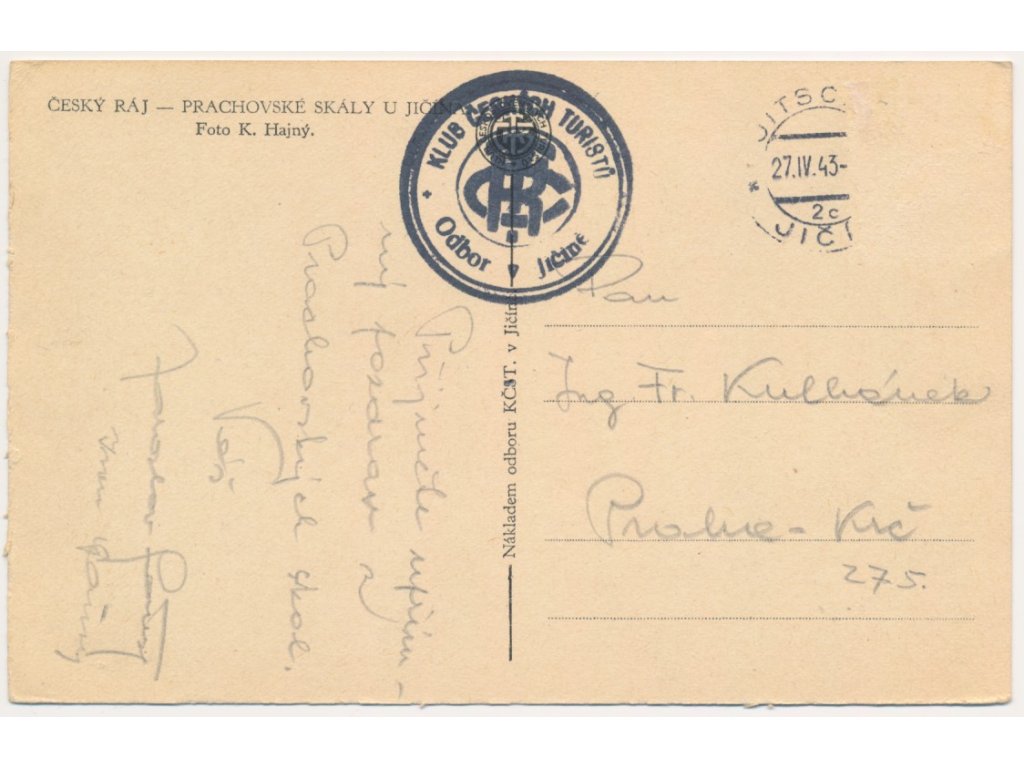 ČESKÝ RÁJ — PRACHOVSKÉ SKÁLY U JIČÍNA
Foto K. Hajný.
KLUB ČESKÝCH TURISTŮ
Odbor Jičíně
JITSC
27.IV.43-
2c
JIČÍ
Nákladem odboru KČST. v Jičín
Přijměte upřím-
ný pozdrav z
Prachovských skal.
Váš
Jaroslav
Pan
Ing. Fr. Kulhánek
Praha - Krč
275.